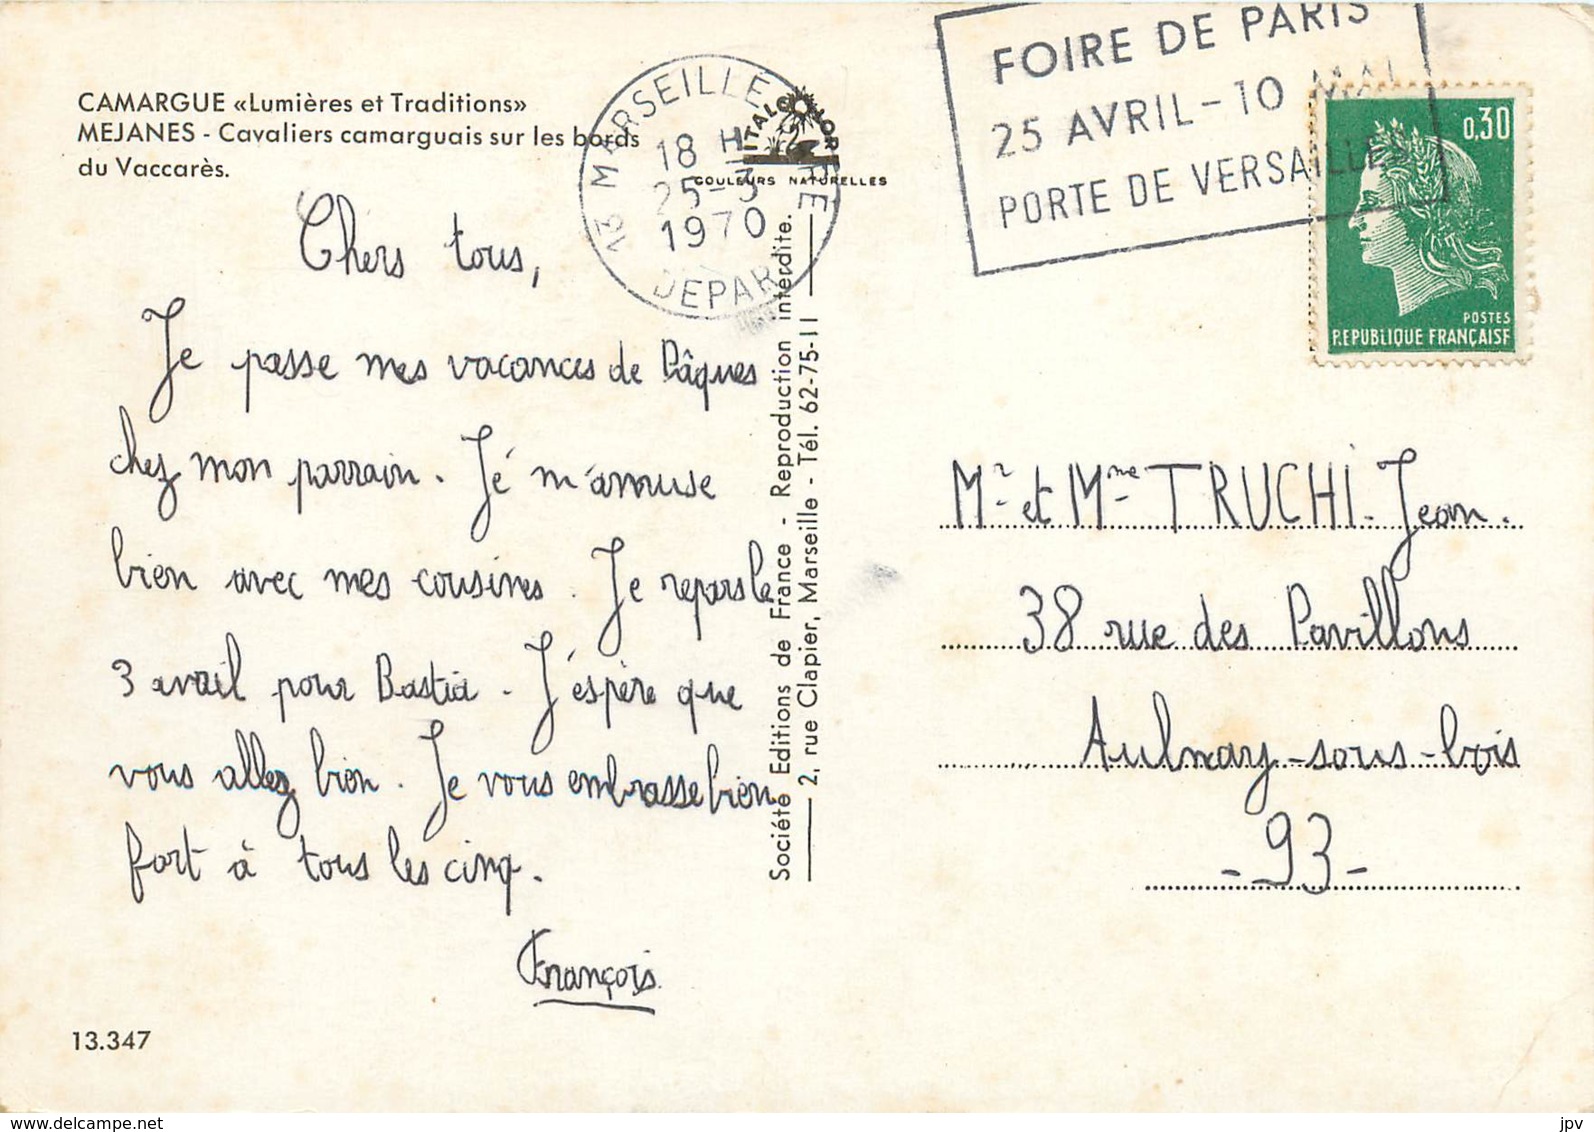 CAMARGUE «Lumières et Traditions»
MEJANES - Cavaliers camarguais sur les bords
du Vaccarès.
13 MARSEILLE GARE
18 H
25-3
1970
DEPART
ITALCOLOR
COULEURS NATURELLES
FOIRE DE PARIS
25 AVRIL - 10 MAI
PORTE DE VERSAILLES
0,30
POSTES
REPUBLIQUE FRANÇAISE
Chers tous,
Je passe mes vacances de Pâques
chez mon parrain. Je m'amuse
bien avec mes cousines. Je repars le
3 avril pour Bastia. J'éspère que
vous allez bien. Je vous embrasse bien
fort à tous les cinq.
François
13.347
Société Editions de France - Reproduction interdite.
2, rue Clapier, Marseille - Tél. 62-75-11
Mr et Mme TRUCHI Jean.
38 rue des Pavillons
Aulnay-sous-bois
-93-
www.delcampe.net
jpv